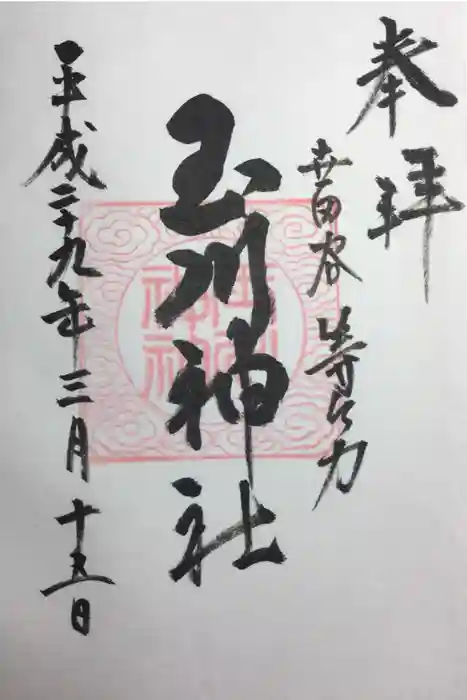 奉拝
世田谷 等々力
玉川神社
平成二十九年三月十五日
玉川
神社